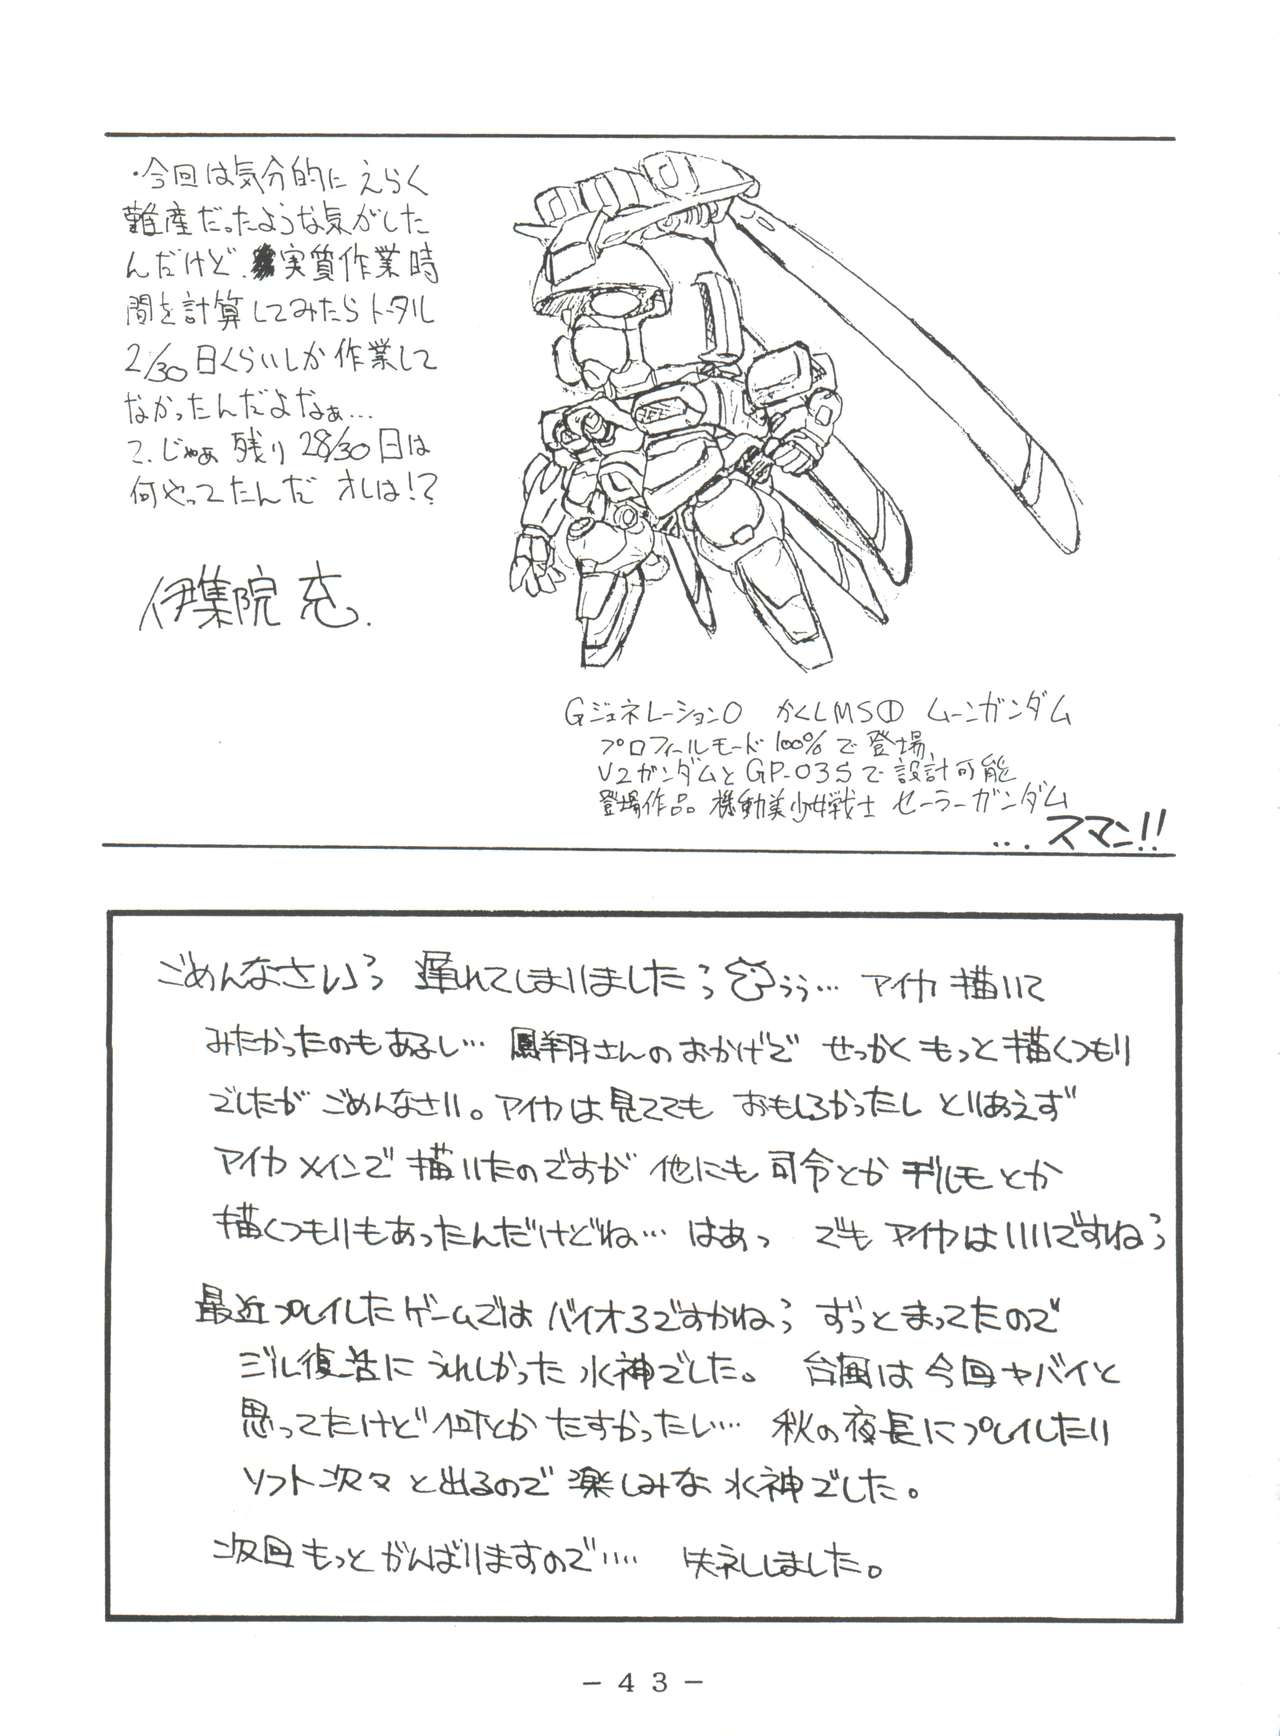 ・今回は気分的にえらく
難産だったような気がした
んだけど、実質作業時
間を計算してみたらトータル
2/30日くらいしか作業して
なかったんだよなぁ…
て、じゃぁ残り28/30日は
何やってたんだオレは!?
伊集院 充
Gジェネレーション0 かくしMS① ムーンガンダム
プロフィールモード100%で登場、
V2ガンダムとGP-03Sで設計可能
登場作品 機動美少女戦士 セーラーガンダム
...スマン!!
ごめんなさいっ 遅れてしまいましたっ うぅ… アイカ描いて
みたかったのもあるし… 鳳翔さんのおかげで せっかくもっと描くつもり
でしたが ごめんなさい。アイカは見ててもおもしろかったし とりあえず
アイカメインで描いたのですが 他にも司令とかデルモとか
描くつもりもあったんだけどね… はあっ でもアイカはいいですねっ
最近プレイしたゲームではバイオ3ですかねっ ずっとまってたので
ジル復活にうれしかった水神でした。 台風は今回ヤバイと
思ってたけど何とかたすかったし… 秋の夜長にプレイしたい
ソフト次々と出るので楽しみな水神でした。
次回もっとがんばりますので…… 失礼しました。
- 43 -